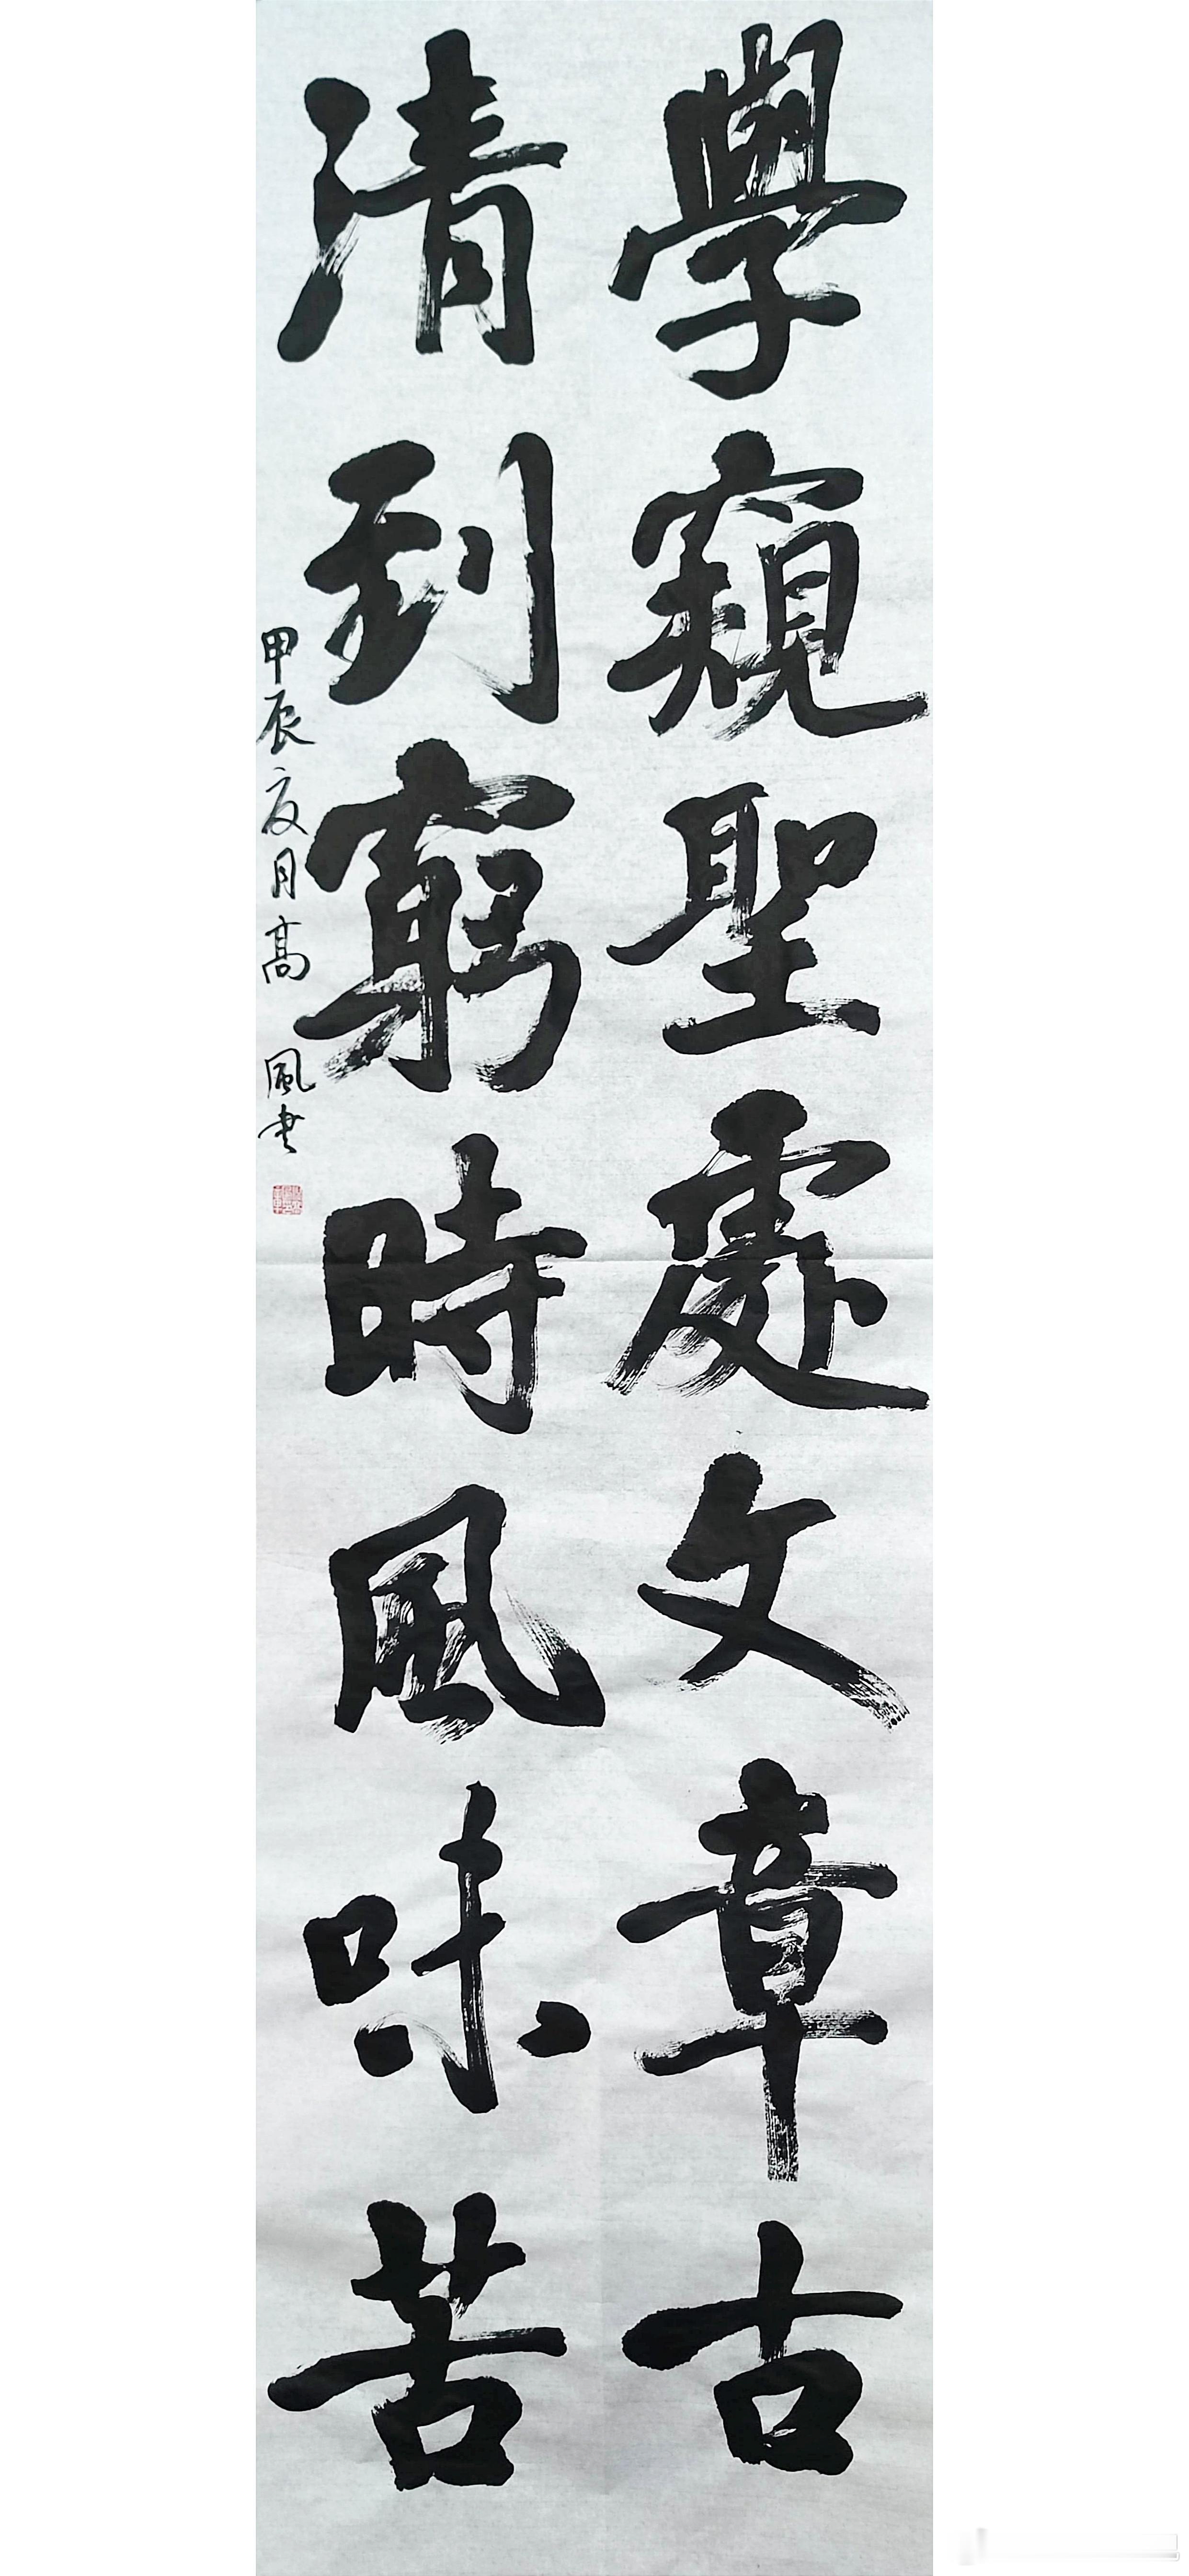 學窺聖處文章古
清到窮時風味苦
甲辰夏月高風书